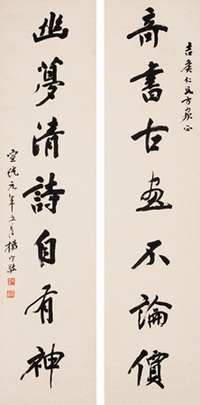 吉侯仁兄方家正
奇書古画不論價
幽夢清詩自有神
宣統元年五月楊守敬